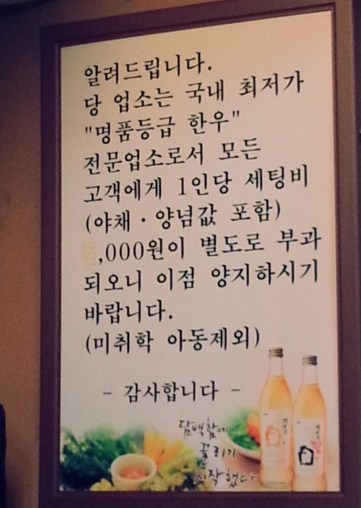 알려드립니다.
당 업소는 국내 최저가
"명품등급 한우"
전문업소로서 모든
고객에게 1인당 세팅비
(야채 · 양념값 포함)
,000원이 별도로 부과
되오니 이점 양지하시기
바랍니다.
(미취학 아동제외)
- 감사합니다 -
담백함에
끌리기
시작했다